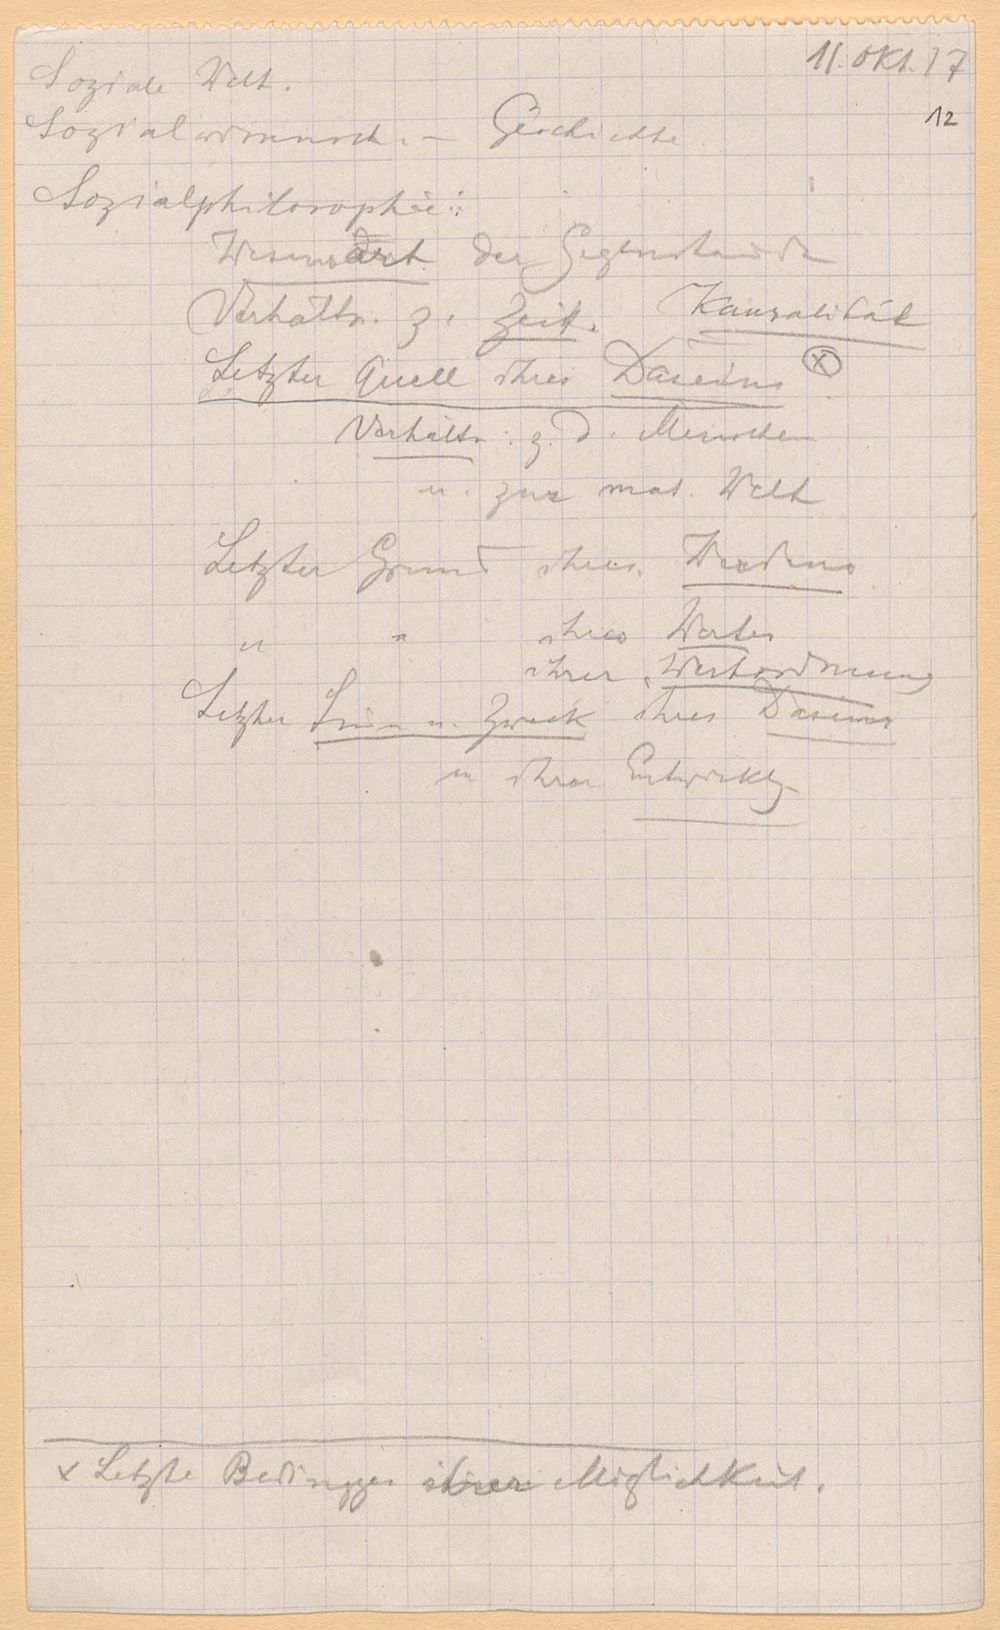 11. Okt. 17
12
Soziale Welt.
Sozialwissensch. – Geschichte
Sozialphilosophie:
Wesensart der Gegenstände
Verhältn. z. Zeit. Kausalität
Letzter Quell ihres Daseins ⓧ
Verhältn. z. d. Menschen
u. zur mat. Welt
Letzter Grund ihres Werdens
" " ihres Wertes
ihrer Wertordnung
Letzter Sinn u. Zweck ihres Daseins
u ihrer Entwicklg
x Letzte Bedinggen ihrer Möglichkeit.